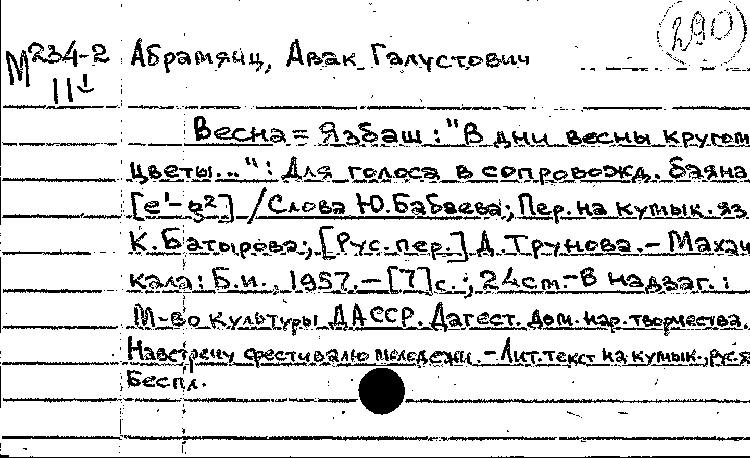 290
М 234-2 Абрамянц, Авак Галустович
11
Весна = Язбаш : "В дни весны кругом
цветы..." : Для голоса в сопровожд. баяна
[e¹- g²] / Слова Ю. Бабаева; Пер. на кумык. яз.
К. Батырова; [Рус. пер.] Д. Трунова. – Махач
кала: Б.и., 1957. – [7] с.; 24 cm. – В надзаг. :
М-во культуры ДАССР. Дагест. дом. нар. творчества.
Навстречу фестивалю молодежи. – Лит. текст на кумык., рус. я
Беспл.